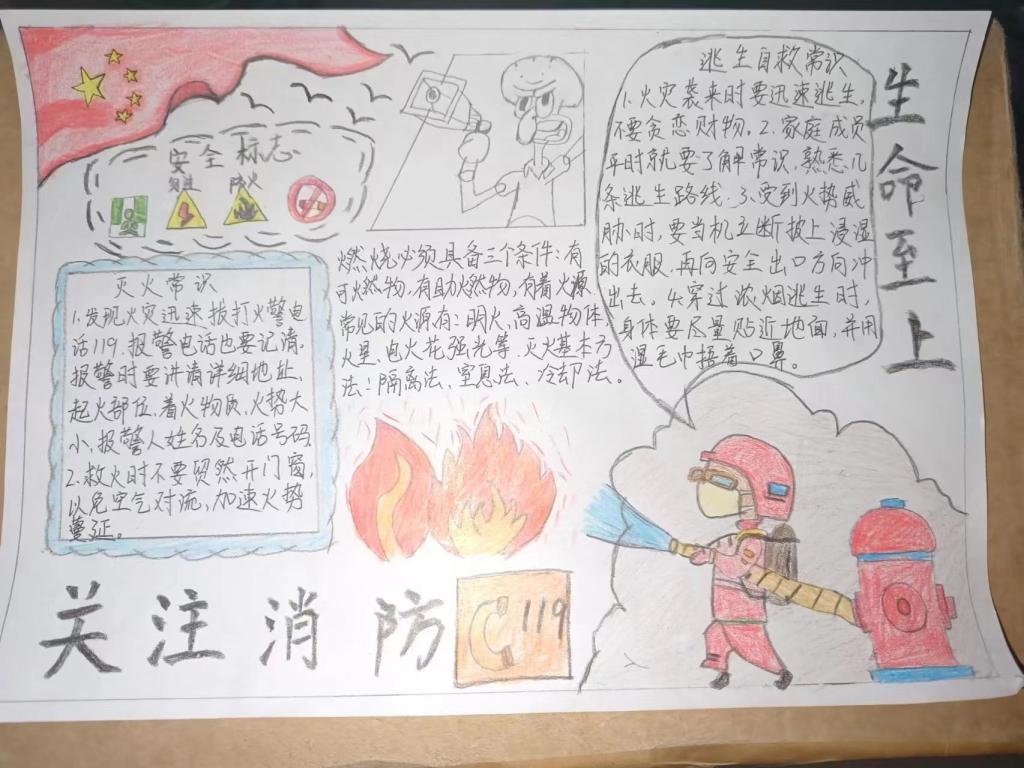 安全标志
当心
防火
灭火常识
1.发现火灾迅速拨打火警电
话119.报警电话也要记清,
报警时要讲清详细地址、
起火部位,着火物质,火势大
小,报警人姓名及电话号码
2.救火时不要贸然开门窗,
以免空气对流,加速火势
蔓延。
燃烧必须具备三个条件:有
可燃物,有助燃物,有着火源
常见的火源有:明火,高温物体,
火星,电火花强光等.灭火基本方
法:隔离法、窒息法、冷却法。
逃生自救常识
1.火灾袭来时要迅速逃生,
不要贪恋财物。2.家庭成员
平时就要了解常识,熟悉几
条逃生路线.3.受到火势威
胁时,要当机立断披上浸湿
的衣服,再向安全出口方向冲
出去。4.穿过浓烟逃生时,
身体要尽量贴近地面,并用
湿毛巾捂着口鼻。
生命至上
关注消防
119